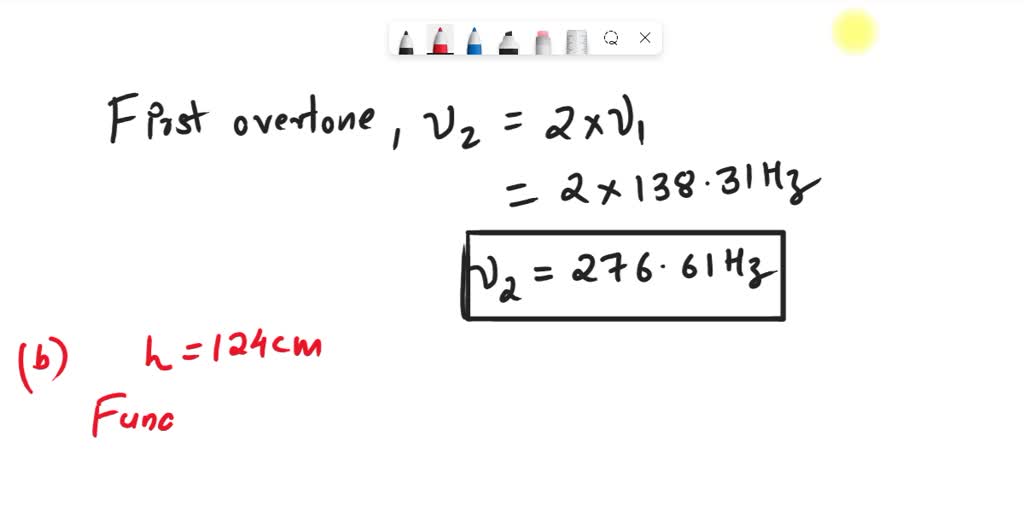 First overtone, ν₂ = 2×ν₁
= 2 × 138.31 Hz
ν₂ = 276.61 Hz
(b) h = 124 cm
Func